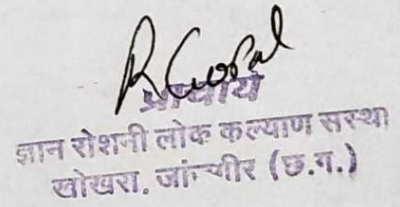 R Gopal
प्राचार्य
ज्ञान रोशनी लोक कल्याण संस्था
खोखरा. जांजगीर (छ.ग.)